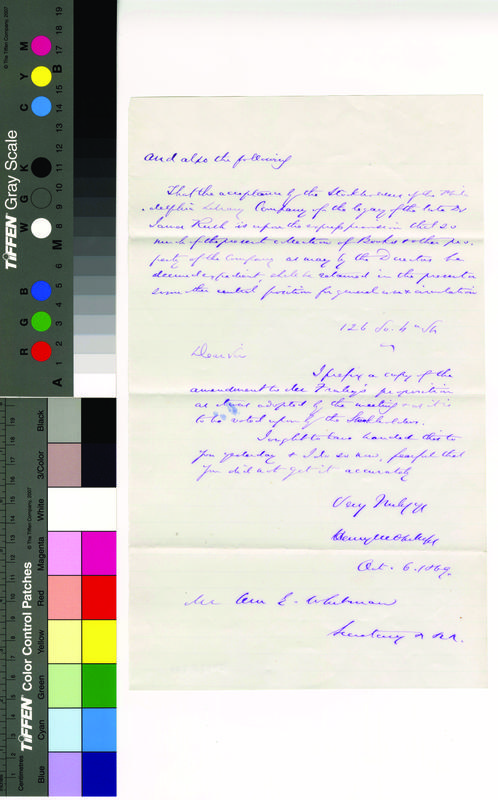 and also the following
That the acceptance by the Stockholders of the Phil
adelphia Library Company of the legacy of the late Dr
James Rush is upon the express provision that so
much of the present collection of Books & other pro
perty of the Company as may by the Directors be
deemed expedient, shall be retained in the present or
some other central position for general use & circulation
126 So. 4th St
Dear Sir
I prefix a copy of the
amendment to Mr Fraley's proposition
as adopted by the meeting & as it is
to be voted upon by the Stockholders.
I ought to have handed this to
you yesterday & I do so now, fearful that
you did not get it accurately
Very Truly Yrs
Henry M Phillips
Oct. 6. 1869.
Mr Wm E. Whitman
Secretary &
TIFFEN Gray Scale
© The Tiffen Company, 2007
R G B W G K C Y M
A 1 2 3 4 5 6 M 8 9 10 11 12 13 14 15 B 17 18 19
TIFFEN Color Control Patches
© The Tiffen Company, 2007
Centimetres
Blue Cyan Green Yellow Red Magenta White 3/Color Black